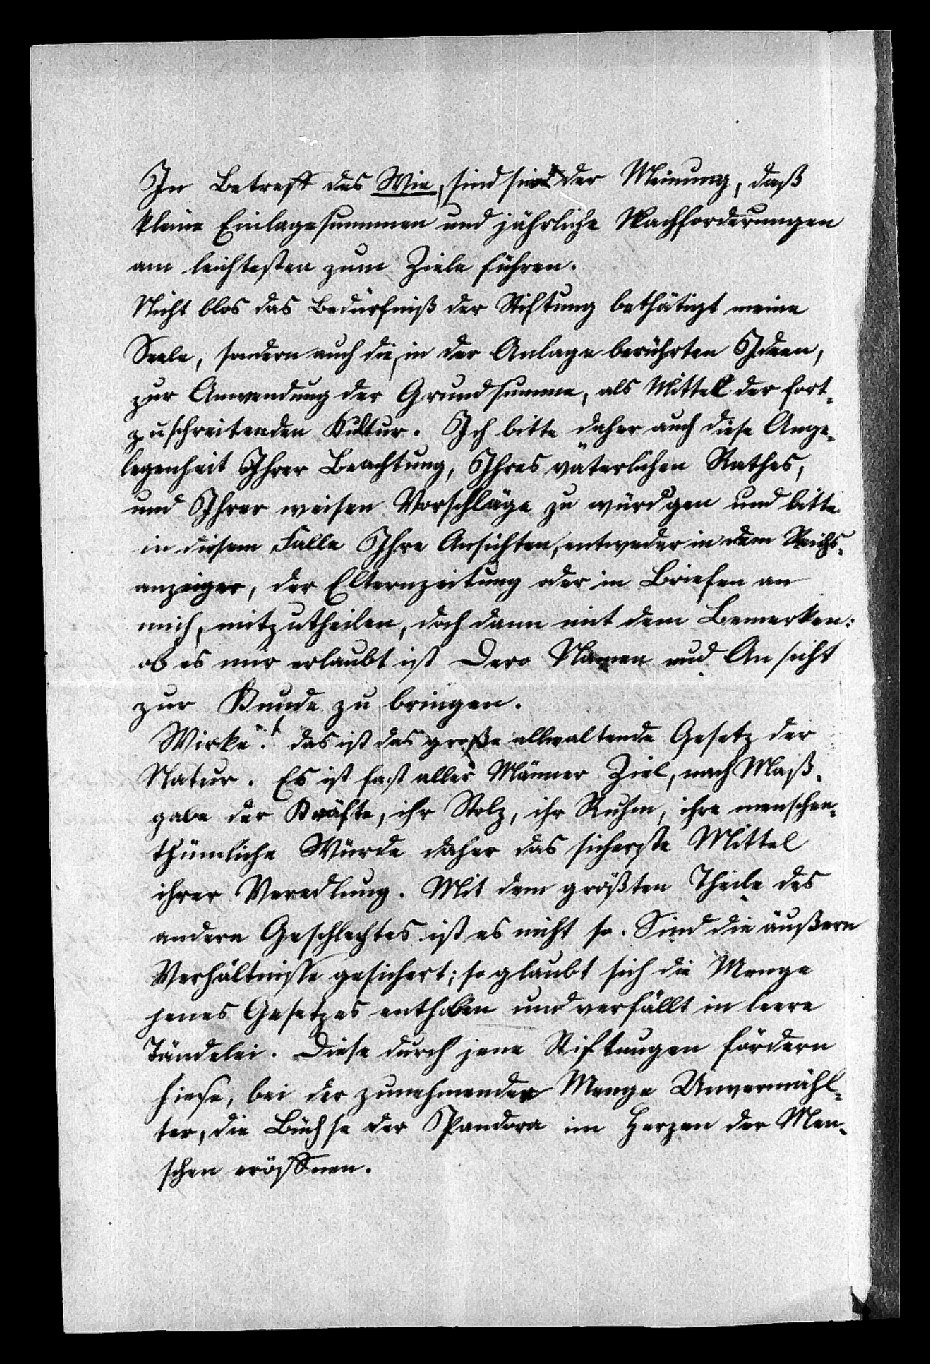 In Betreff des Wie, sind sie der Meinung, daß
kleine Einlagesummen und jährliche Nachforderungen
am leichtesten zum Ziele führen.
Nicht blos das Bedürfniß der Stiftung bethätigt meine
Seele, sondern auch die, in der Anlage berührten Ideen,
zur Anwendung der Grundsumme, als Mittel der fort-
zuschreitenden Kultur. Ich bitte daher auch diese Ange-
legenheit Ihrer Beachtung, Ihres väterlichen Rathes,
und Ihrer weisen Vorschläge zu würd'gen und bitte
in diesem Falle Ihre Ansichten, entweder in dem Reichs-
anzeiger, der Elternzeitung oder in Briefen an
mich, mitzutheilen, doch dann mit dem Bemerken:
ob es mir erlaubt ist Dero Namen und Ansicht
zur Kunde zu bringen.
Wirke! das ist das große allwaltende Gesetz der
Natur. Es ist fast aller Männer Ziel, nach Maß-
gabe der Kräfte, ihr Stolz, ihr Ruhm, ihre menschen-
thümliche Würde daher das sicherste Mittel
ihrer Veredlung. Mit dem größten Theile des
andern Geschlechtes ist es nicht so. Sind die äußern
Verhältnisse gesichert; so glaubt sich die Menge
jenes Gesetzes enthoben und verfällt in leere
Tändelei. Diese durch jene Stiftungen fördern
hiese, bei der zunehmenden Menge Unvermähl-
ter, die Büchse der Pandora im Herzen der Men-
schen eröffnen.